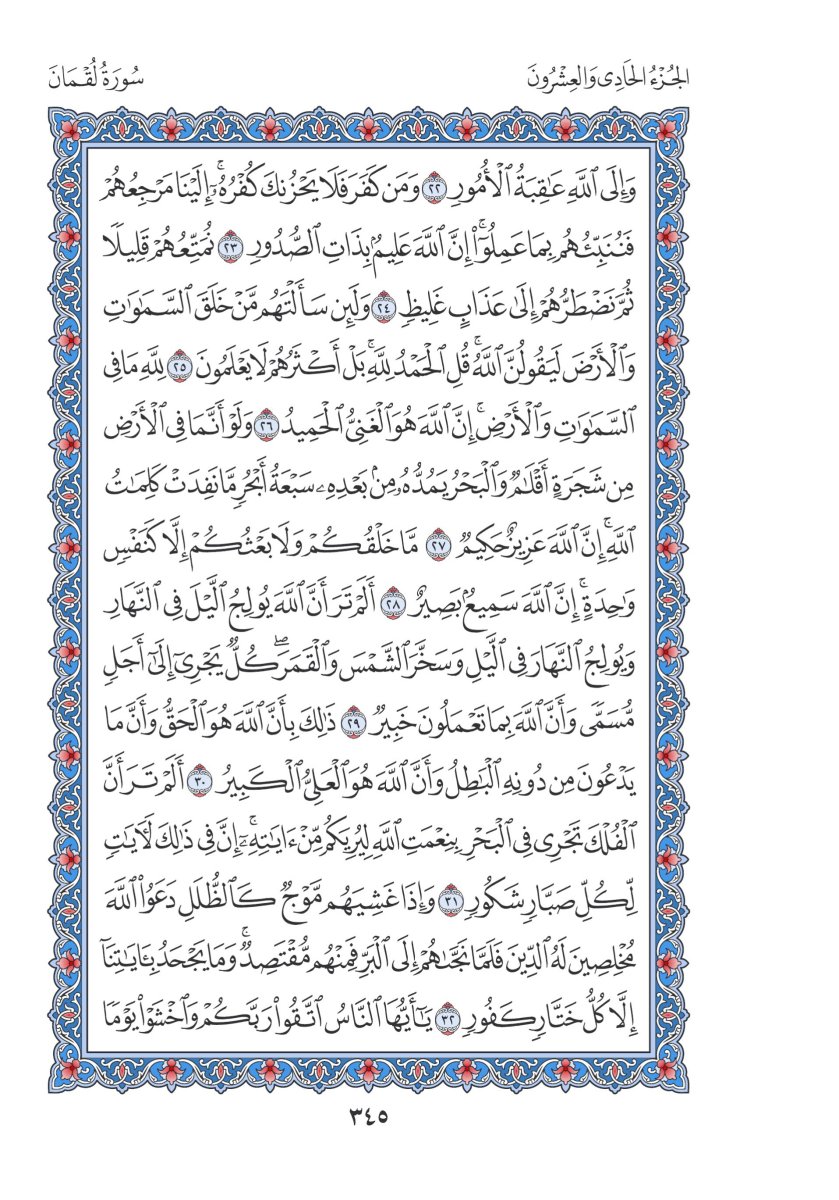 الجُزْءُ الحَادِى وَالعِشْرُونَ
سُورَةُ لُقْمَانَ
وَإِلَى ٱللَّهِ عَٰقِبَةُ ٱلْأُمُورِ ٢٢ وَمَن كَفَرَ فَلَا يَحْزُنكَ كُفْرُهُۥٓۚ إِلَيْنَا مَرْجِعُهُمْ
فَنُنَبِّئُهُم بِمَا عَمِلُوٓا۟ۚ إِنَّ ٱللَّهَ عَلِيمٌۢ بِذَاتِ ٱلصُّدُورِ ٢٣ نُمَتِّعُهُمْ قَلِيلًا
ثُمَّ نَضْطَرُّهُمْ إِلَىٰ عَذَابٍ غَلِيظٍ ٢٤ وَلَئِن سَأَلْتَهُم مَّنْ خَلَقَ ٱلسَّمَٰوَٰتِ
وَٱلْأَرْضَ لَيَقُولُنَّ ٱللَّهُۚ قُلِ ٱلْحَمْدُ لِلَّهِۚ بَلْ أَكْثَرُهُمْ لَا يَعْلَمُونَ ٢٥ لِلَّهِ مَا فِى
ٱلسَّمَٰوَٰتِ وَٱلْأَرْضِۚ إِنَّ ٱللَّهَ هُوَ ٱلْغَنِىُّ ٱلْحَمِيدُ ٢٦ وَلَوْ أَنَّمَا فِى ٱلْأَرْضِ
مِن شَجَرَةٍ أَقْلَٰمٌ وَٱلْبَحْرُ يَمُدُّهُۥ مِنۢ بَعْدِهِۦ سَبْعَةُ أَبْحُرٍ مَّا نَفِدَتْ كَلِمَٰتُ
ٱللَّهِۚ إِنَّ ٱللَّهَ عَزِيزٌ حَكِيمٌ ٢٧ مَّا خَلْقُكُمْ وَلَا بَعْثُكُمْ إِلَّا كَنَفْسٍ
وَٰحِدَةٍۚ إِنَّ ٱللَّهَ سَمِيعٌۢ بَصِيرٌ ٢٨ أَلَمْ تَرَ أَنَّ ٱللَّهَ يُولِجُ ٱلَّيْلَ فِى ٱلنَّهَارِ
وَيُولِجُ ٱلنَّهَارَ فِى ٱلَّيْلِ وَسَخَّرَ ٱلشَّمْسَ وَٱلْقَمَرَۖ كُلٌّ يَجْرِىٓ إِلَىٰٓ أَجَلٍ
مُّسَمًّى وَأَنَّ ٱللَّهَ بِمَا تَعْمَلُونَ خَبِيرٌ ٢٩ ذَٰلِكَ بِأَنَّ ٱللَّهَ هُوَ ٱلْحَقُّ وَأَنَّ مَا
يَدْعُونَ مِن دُونِهِ ٱلْبَٰطِلُ وَأَنَّ ٱللَّهَ هُوَ ٱلْعَلِىُّ ٱلْكَبِيرُ ٣٠ أَلَمْ تَرَ أَنَّ
ٱلْفُلْكَ تَجْرِى فِى ٱلْبَحْرِ بِنِعْمَتِ ٱللَّهِ لِيُرِيَكُم مِّنْ ءَايَٰتِهِۦٓۚ إِنَّ فِى ذَٰلِكَ لَءَايَٰتٍ
لِّكُلِّ صَبَّارٍ شَكُورٍ ٣١ وَإِذَا غَشِيَهُم مَّوْجٌ كَٱلظُّلَلِ دَعَوُا۟ ٱللَّهَ
مُخْلِصِينَ لَهُ ٱلدِّينَ فَلَمَّا نَجَّىٰهُمْ إِلَى ٱلْبَرِّ فَمِنْهُم مُّقْتَصِدٌۚ وَمَا يَجْحَدُ بِـَٔايَٰتِنَآ
إِلَّا كُلُّ خَتَّارٍ كَفُورٍ ٣٢ يَٰٓأَيُّهَا ٱلنَّاسُ ٱتَّقُوا۟ رَبَّكُمْ وَٱخْشَوْا۟ يَوْمًا
٣٤٥